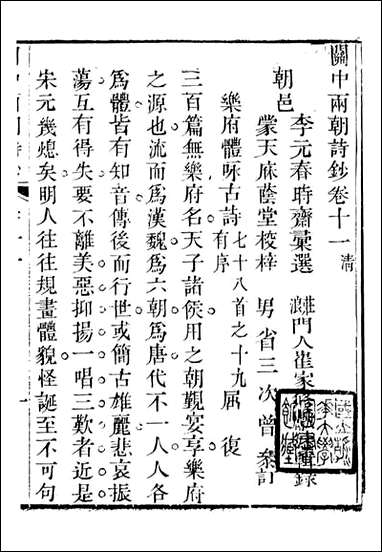 關中兩朝詩鈔卷十一 清
朝邑 李元春時齋彙選 門人崔家 錄
蒙天庥蔭堂校梓 男省三次曾參訂
樂府體咏古詩 七十八首之十九 有序 屈復
三百篇無樂府名天子諸侯用之朝覲宴享樂府
之源也流而爲漢魏爲六朝爲唐代不一人人各
爲體皆有知音傳後而行世或簡古雄麗悲哀振
蕩互有得失要不離美惡抑揚一唱三歎者近是
宋元幾熄矣明人往往規畫體貌怪誕至不可句